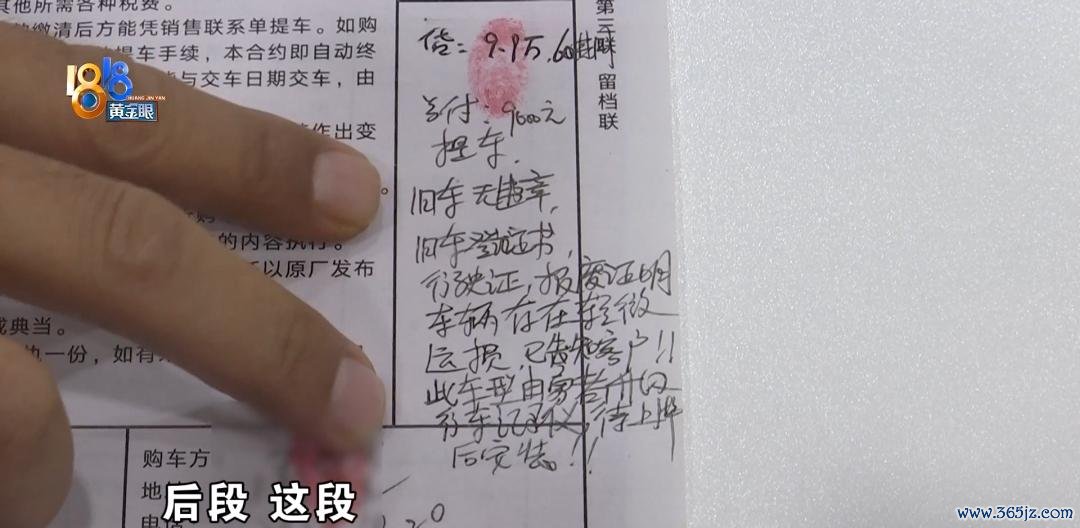 其他所需各种税费。
缴清后方能凭销售联系单提车。如购
提车手续，本合约即自动终
与交车日期交车，由
作出变
的内容执行。
以原厂发布
或典当。
一份，如有
第三联 留档联
1818
HUANG JIN YAN
黄金眼
贷：9.9万，60
付：9600元
提车．
旧车无违章，
旧车登记证书，
行驶证，报废证明
车辆存在轻微
运损，已告知客户!!
此车型由
行车记录仪，待上牌
后安装!!
购车方
地
电
后段 这段
www.365jz.com